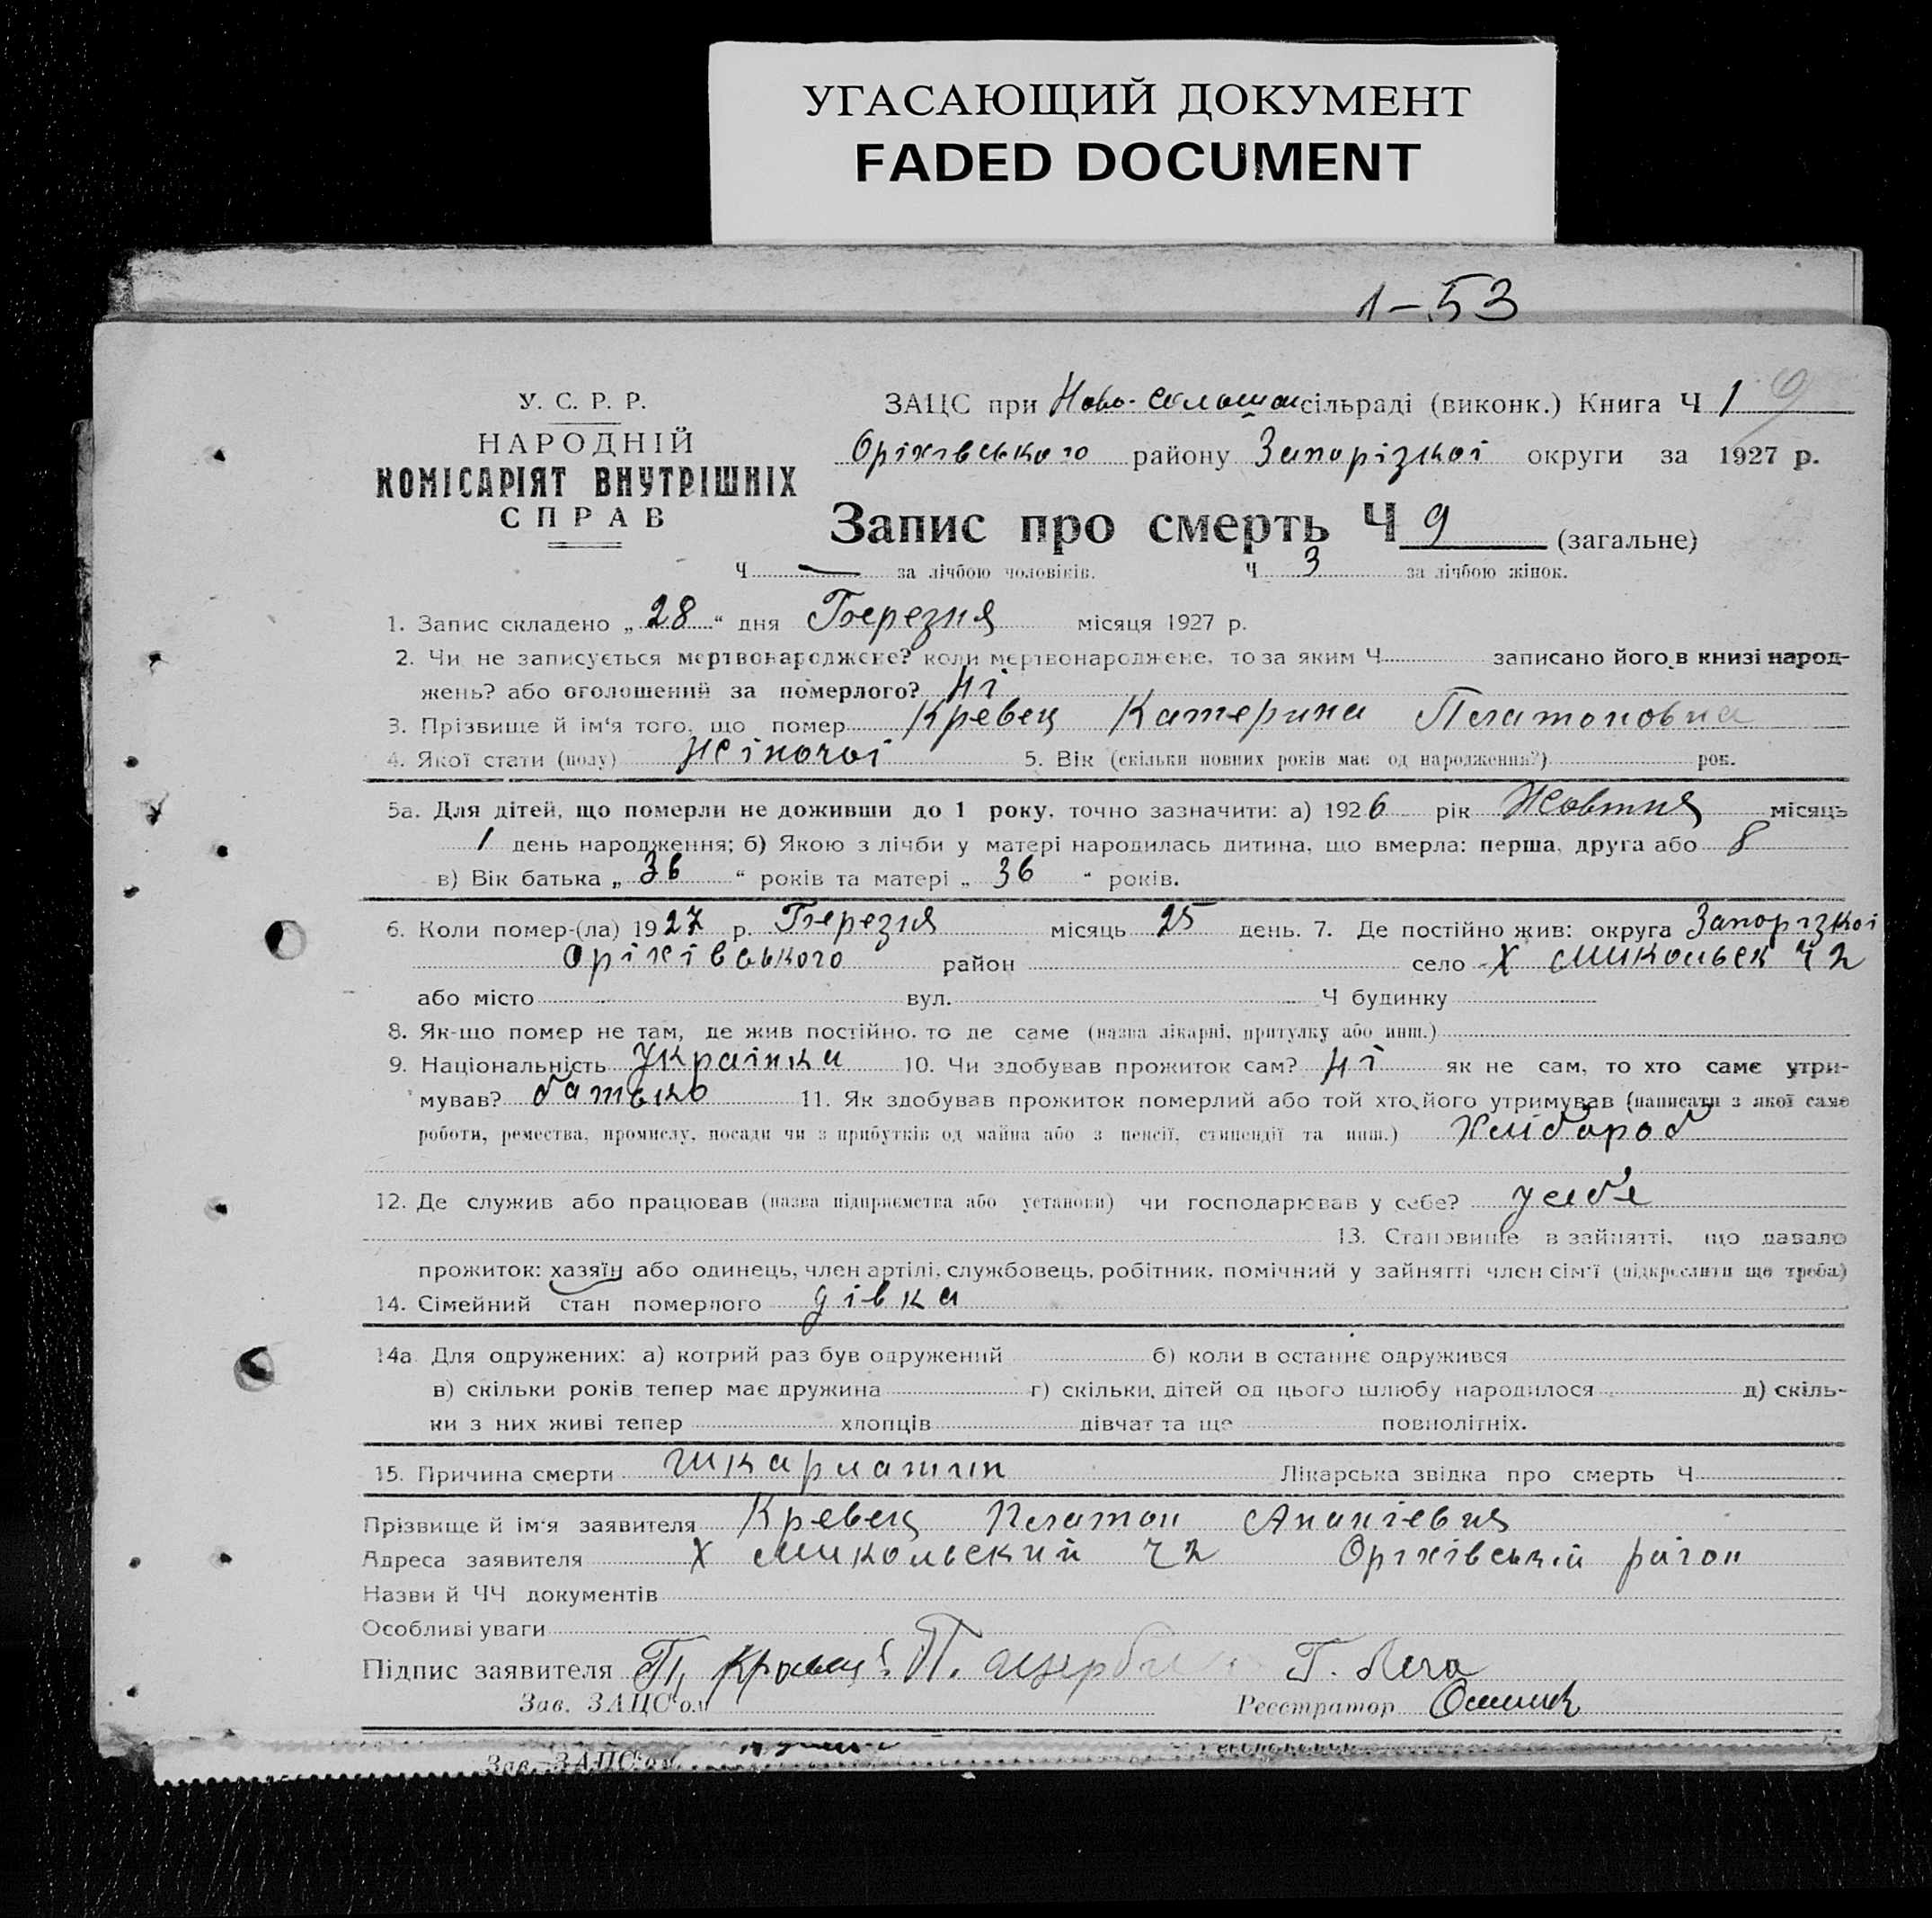 УГАСАЮЩИЙ ДОКУМЕНТ
FADED DOCUMENT
1-53
У. С. Р. Р.
НАРОДНІЙ
КОМІСАРІЯТ ВНУТРІШНІХ
СПРАВ
ЗАЦС при Ново- сільраді (виконк.) Книга Ч 1 9
Оріхівського району Запорізкої округи за 1927 р.
Запис про смерть Ч 9 (загальне)
Ч — за лічбою чоловіків. Ч 3 за лічбою жінок.
1. Запис складено „ 28 “ дня Березня місяця 1927 р.
2. Чи не записується мертвонароджене? коли мертвонароджене, то за яким Ч записано його в книзі народ-
жень? або оголошений за померлого? Ні
3. Прізвище й ім'я того, що помер Кревец Катерина Платоновна
4. Якої стати (полу) Жіночої 5. Вік (скільки повних років має од народження?) рок.
5а. Для дітей, що померли не доживши до 1 року, точно зазначити: а) 1926 рік Жовтня місяць
1 день народження; б) Якою з лічби у матері народилась дитина, що вмерла: перша, друга або 8
в) Вік батька „ 36 “ років та матері „ 36 “ років.
6. Коли помер-(ла) 1927 р. Березня місяць 25 день. 7. Де постійно жив: округа Запорізкої
Оріхівського район село Х Микольск Ч 2
або місто вул. Ч будинку
8. Як-що помер не там, де жив постійно, то де саме (назва лікарні, притулку або инш.)
9. Національність Українка 10. Чи здобував прожиток сам? Ні як не сам, то хто саме утри-
мував? батько 11. Як здобував прожиток померлий або той хто його утримував (написати з якої саме
роботи, ремества, промислу, посади чи з прибутків од майна або з пенсії, стипендії та инш.) Хлібороб
12. Де служив або працював (назва підприємства або установи) чи господарював у себе? у себе
13. Становище в зайнятті, що давало
прожиток: хазяїн або одинець, член артілі, службовець, робітник, помічний у зайнятті член сім'ї (підкреслити що треба)
14. Сімейний стан померлого дівка
14а Для одружених: а) котрий раз був одружений б) коли в останнє одружився
в) скільки років тепер має дружина г) скільки дітей од цього шлюбу народилося д) скіль-
ки з них живі тепер хлопців дівчат та ще повнолітніх.
15. Причина смерти Шкарлатин Лікарська звідка про смерть Ч
Прізвище й ім'я заявителя Кревец Платон Ананіевич
Адреса заявителя Х Микольский Ч 2 Оріхівській район
Назви й ЧЧ документів
Особливі уваги
Підпис заявителя П, Кровец П. Г. Лега
Зав. ЗАЦС'ом Реєстратор
Зав. ЗАЦС'ом